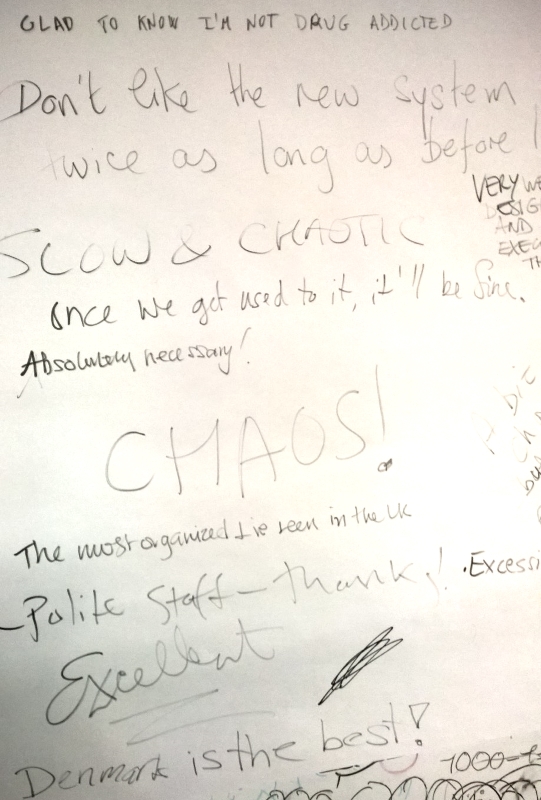 GLAD TO KNOW I'M NOT DRUG ADDICTED
Don't like the new system
twice as long as before!
VERY WE
DESIG
AND
EXEC
TH
SLOW & CHAOTIC
Once we get used to it, it'll be fine.
Absolutely necessary!
CHAOS!
The most organized I've seen in the UK
- Polite Staff - thanks!
.Excessi
Excellent
Denmark is the best!
1000-t